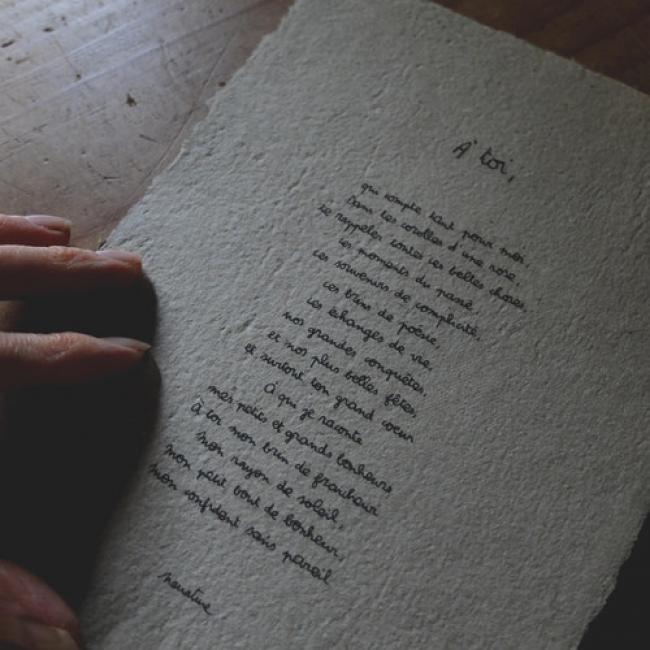 À toi,
qui compte tant pour moi.
Dans les corolles d'une rose,
se rappeler toutes ces belles choses,
ces moments du passé.
ces souvenirs de complicité,
ces brins de poésie,
ces échanges de vie,
nos grandes conquêtes,
et nos plus belles fêtes,
et surtout ton grand coeur
À qui je raconte
mes petits et grands bonheurs
À toi mon brin de fraicheur
mon rayon de soleil,
mon petit bout de bonheur,
mon confident sans pareil